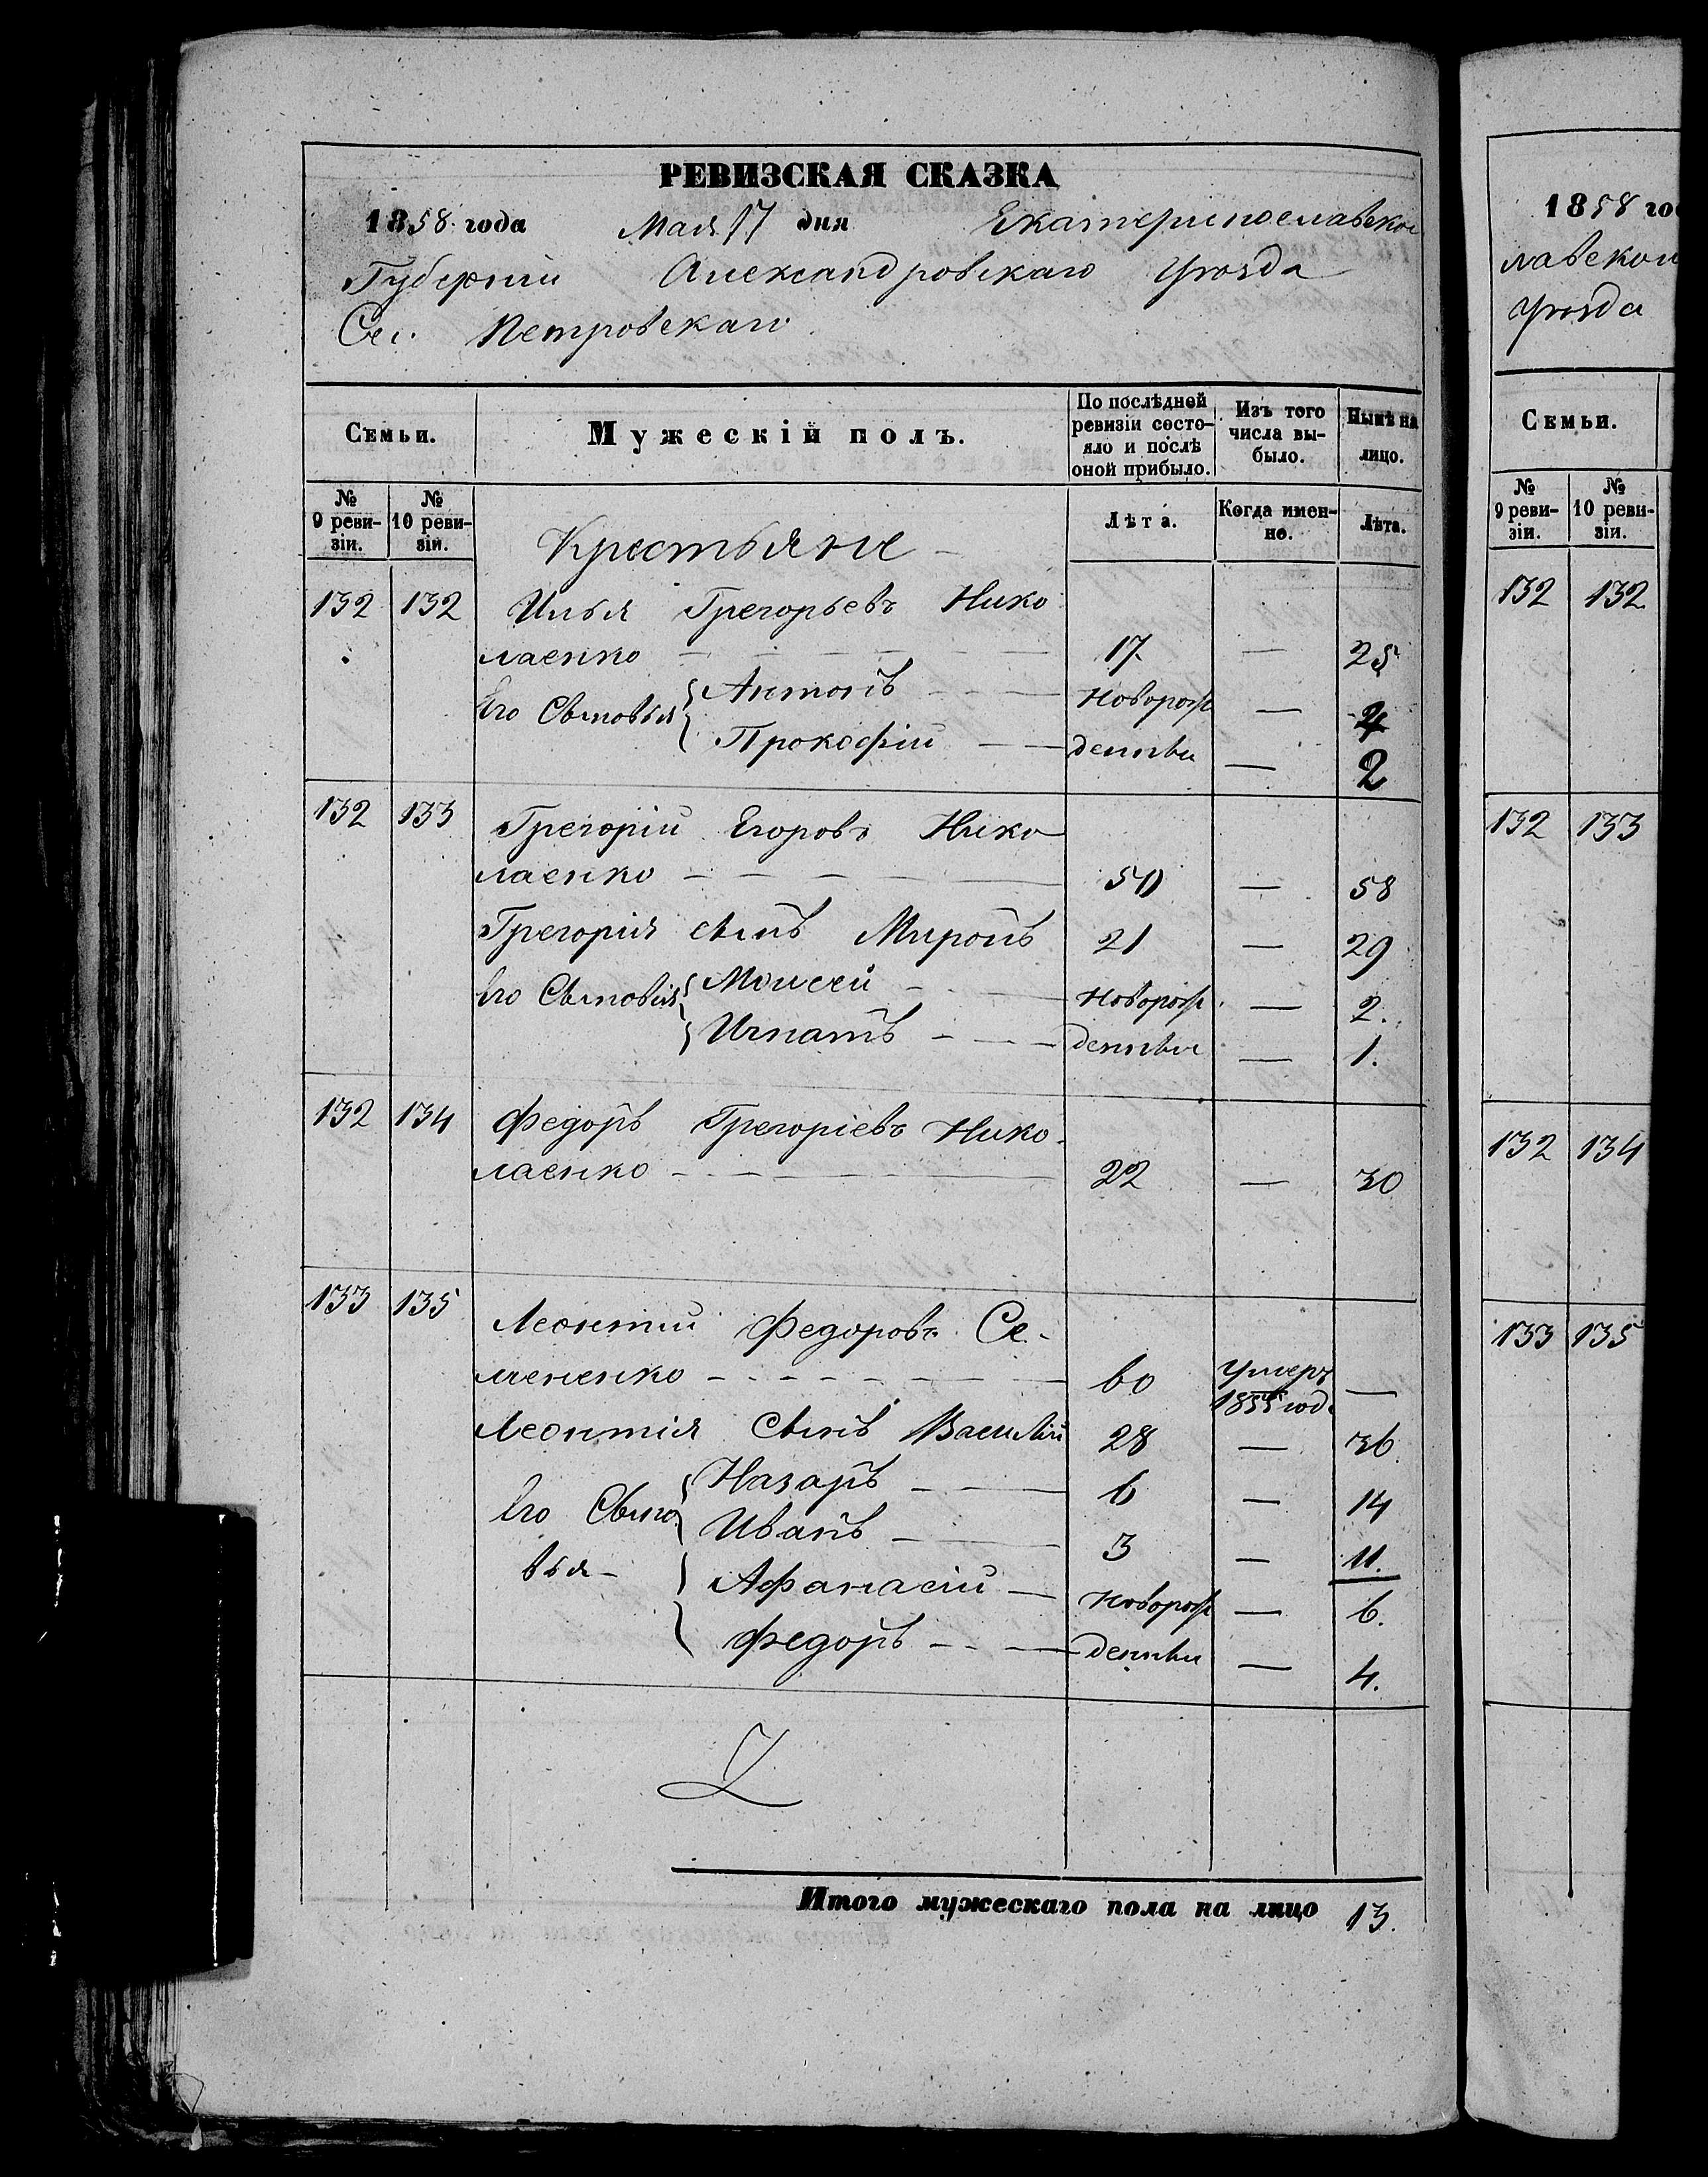 РЕВИЗСКАЯ СКАЗКА
1858 года Мая 17 дня Екатеринославской
Губерніи Александровскаго Уѣзда
Сел. Петровскаго
Семьи. Мужескій полъ. По послѣдней ревизіи состояло и послѣ оной прибыло. Изъ того числа выбыло. Нынѣ на лицо.
№ 9 ревизіи. № 10 ревизіи. Крестьяне Лѣта. Когда именно. Лѣта.
132 132 Илья Грегорьевъ Нико
лаенко 17. — 25
Его Сыновья Антонъ Новорож — 4
Прокофій денные — 2
132 133 Грегорій Егоровъ Нико
лаенко 50 — 58
Грегорія сынъ Миронъ 21 — 29
Его Сыновья Моисей Новорож — 2.
Игнатъ денные — 1.
132 134 Федоръ Грегоріевъ Нико-
лаенко 22 — 30
133 135 Леонтій Федоровъ Се-
мененко 60 Умеръ 1855 год. —
Леонтія Сынъ Василій 28 — 36
Его Сыно Назаръ 6 — 14
Иванъ 3 — 11.
вья Афанасій Новорож — 6.
Федоръ денные — 4.
Итого мужескаго пола на лицо 13.
1858 го
лавской
Уѣзда
Семьи.
№ 9 ревизіи. № 10 ревизіи.
132 132
132 133
132 134
133 135